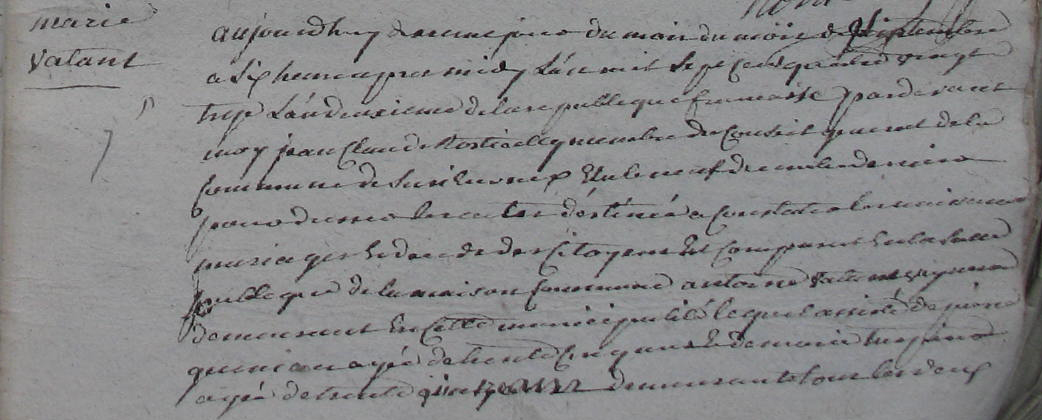 marie
Valant
aujourdhuy douzieme jour du mois du mois de Septembre
a Six heure apres midy L'an mil Sept Cent quatre vingt
treze L'an deuxieme de la republique francaisse pardevant
moy jean Claude membre du Conseil general de la
Commune de Elu le neuf decembre dernier
pour dresser les actes déstinés a Constater les naissances
mariages et deces des Citoyens Est Comparut En la Salle
publique de la maison Commune antoine Valant
demeurant En Cette municipalité lequel assisté de pierre
agée de trente Cinq ans et de marie
agée de trente quatre ans demeurant tous les deux